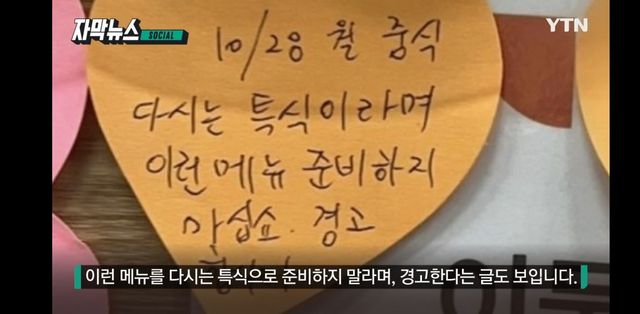 자막뉴스 SOCIAL
YTN
10/28 월 중식
다시는 특식이라며
이런 메뉴 준비하지
마십쇼. 경고
이런 메뉴를 다시는 특식으로 준비하지 말라며, 경고한다는 글도 보입니다.